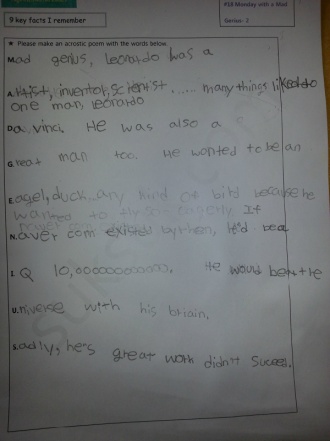 #18 Monday with a Mad
9 key facts I remember
Genius- 2
★ Please make an acrostic poem with the words below.
Mad genius, leonardo was a
Artist, inventor, scientist ...... many things liked to
one man, leonardo
Da vinci. He was also a
Great man too. He wanted to be an
Eagel, duck...any kind of bird because he
wanted to fly so eagerly. If
Naver com existed by then, He'd beat
I Q 10,00000000000. He would beat the
Universe with his briain.
Sadly, he's great work didn't Succes.